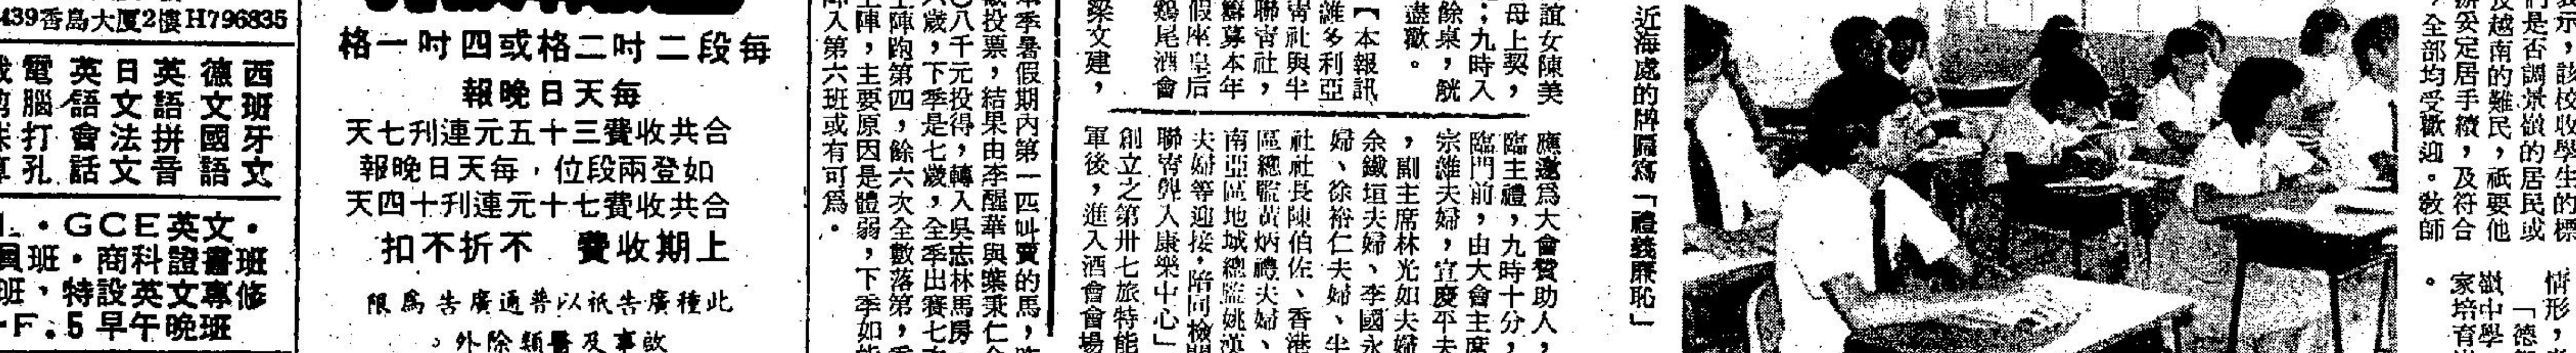 439香島大厦2樓H796835
西班牙文
德文國語
英語拼音
日文法文
英語會話
電腦打孔
GCE英文・
班・商科證書班
班、特設英文專修
F.5早午晚班
每段二吋二格或四吋一格
每天日晚報
合共收費三十五元連刋七天
如登兩段位，每天日晚報
合共收費七十元連刋十四天
上期收費 不折不扣
此種廣告祇以普通廣告爲限
啟事及醫類除外。
本季暑假期內第一匹叫賣的馬，
投票，結果由李醒華與葉秉仁合
八千元投得，轉入吳志林馬房。
六歲，下季是七歲，全季出賽七次
上陣跑第四，餘六次全數落第，
陣，主要原因是體弱，下季如能
入第六班或有可爲。
誼女陳美
母上契，
；九時入
餘桌，觥
盡歡。
【本報訊
維多利亞
靑社與半
聯靑社，
籌募本年
假座皇后
鷄尾酒會
梁文建，
應邀爲大會贊助人，
臨主禮，九時十分，
臨門前，由大會主席
宗維夫婦，宣慶平夫
，副主席林光如夫婦
余鐵垣夫婦、李國永
婦、徐裕仁夫婦、半
社社長陳伯佐、香港
區總監黃炳禮夫婦、
南亞區地域總監姚漢
夫婦等迎接，陪同檢閱
聯靑弱人康樂中心」
創立之第卅七旅特能
軍後，進入酒會會場
近海處的牌匾寫「禮義廉恥」
表示，該校收學生的標
們是否調景嶺的居民或
投越南的難民，祇要他
辦妥定居手續，及符合
，全部均受歡迎。敎師
情形，
「德
嶺中學
家培育
。